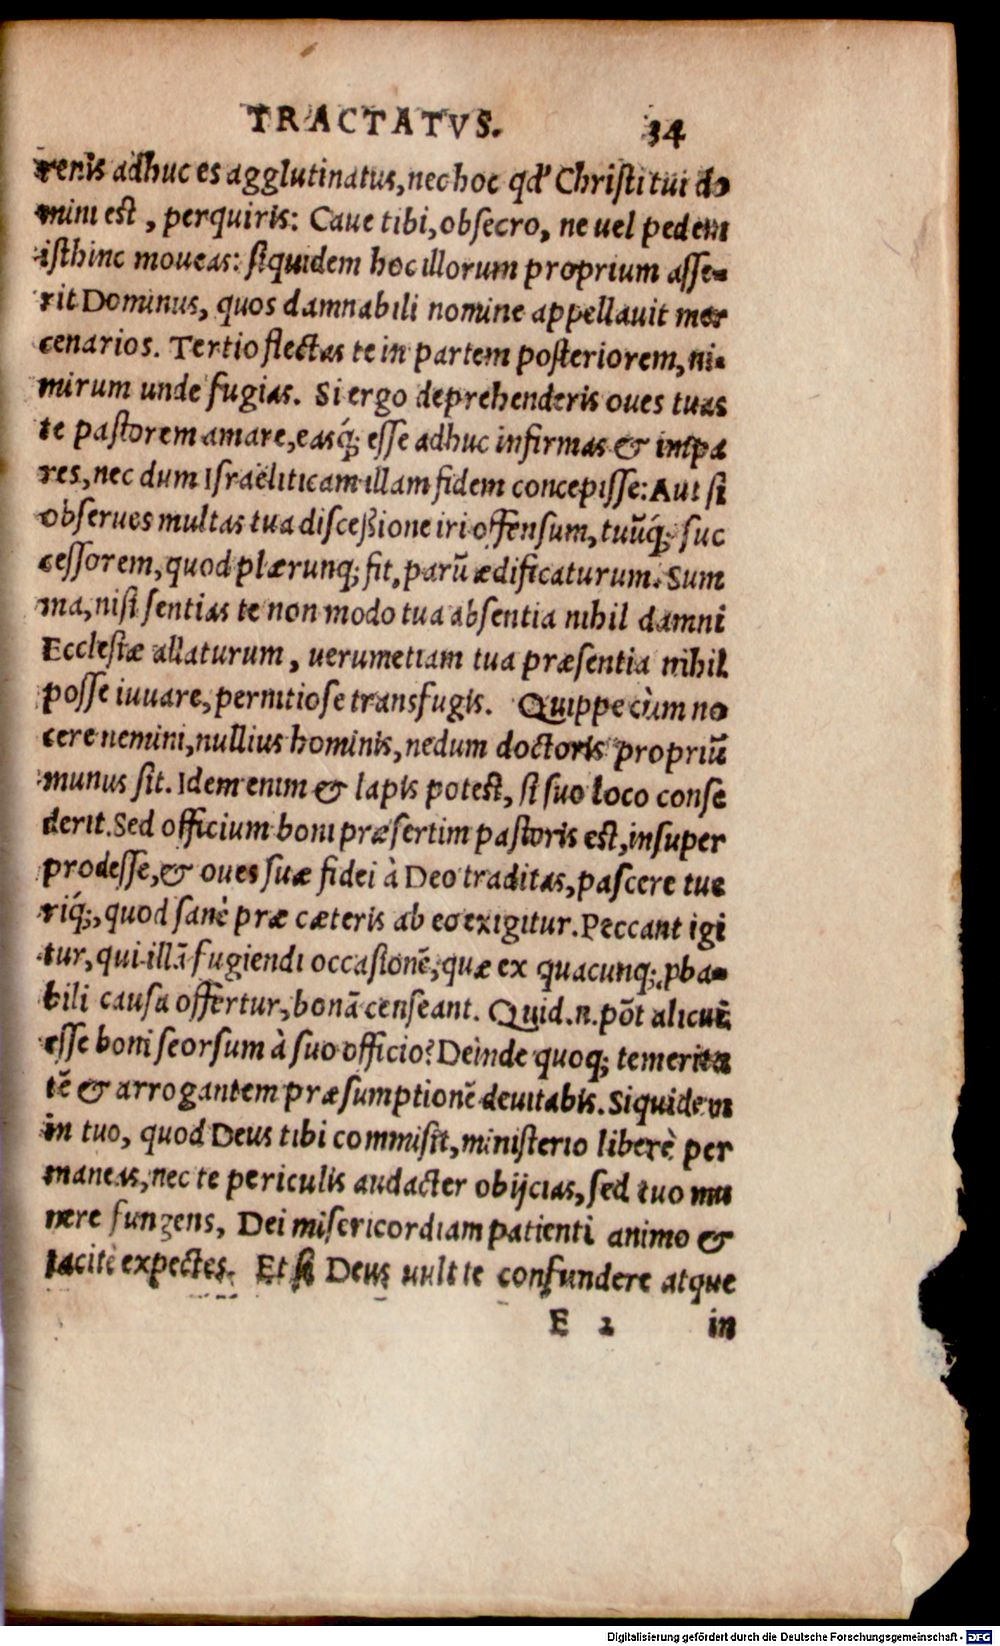 TRACTATVS. 34
renis adhuc es agglutinatus, nec hoc qd' Christi tui do
mini est, perquiris: Caue tibi, obsecro, ne uel pedem
isthinc moueas: siquidem hoc illorum proprium asse-
rit Dominus, quos damnabili nomine appellauit mer
cenarios. Tertio flectas te in partem posteriorem, ni-
mirum unde fugias. Si ergo deprehenderis oues tuas
te pastorem amare, easq́; esse adhuc infirmas & impa
res, nec dum Israëliticam illam fidem concepisse: Aut si
obserues multas tua disceßione iri offensum, tuũq́; suc
cessorem, quod plærunq; fit, parũ ædificaturum. Sum
ma, nisi sentias te non modo tua absentia nihil damni
Ecclesiæ allaturum, uerumetiam tua præsentia nihil
posse iuuare, pernitiose transfugis. Quippe cùm no
cere nemini, nullius hominis, nedum doctoris propriũ
munus sit. Idem enim & lapis potest, si suo loco conse
derit. Sed officium boni præsertim pastoris est, insuper
prodesse, & oues suæ fidei à Deo traditas, pascere tue
riq́;, quod sanè præ cæteris ab eo exigitur. Peccant igi
tur, qui illã fugiendi occasionẽ, quæ ex quacunq; ꝓba-
bili causa offertur, bonã censeant. Quid .n. põt alicui
esse boni seorsum à suo officio? Deinde quoq; temerita
tẽ & arrogantem præsumptionẽ deuitabis. Siquidem
in tuo, quod Deus tibi commisit, ministerio liberè per
maneas, nec te periculis audacter obijcias, sed tuo mu
nere fungens, Dei misericordiam patienti animo &
tacitè expectes. Et si Deus uult te confundere atque
E 2 in
Digitalisierung gefördert durch die Deutsche Forschungsgemeinschaft - DFG